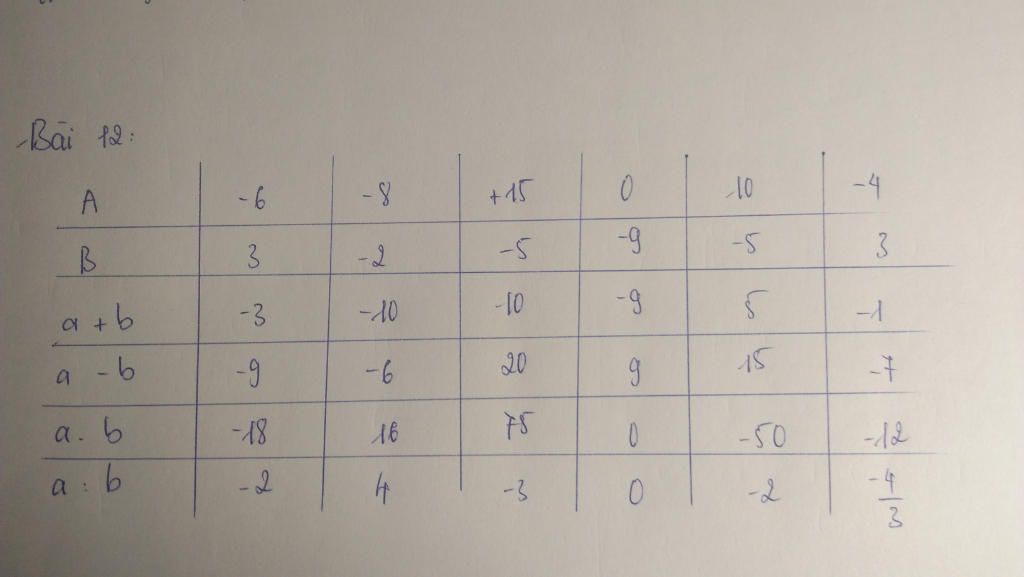 Bài 12:
A -6 -8 +15 0 10 -4
B 3 -2 -5 -9 -5 3
a + b -3 -10 10 -9 5 -1
a - b -9 -6 20 9 15 -7
a . b -18 16 75 0 -50 -12
a : b -2 4 -3 0 -2 -4/3